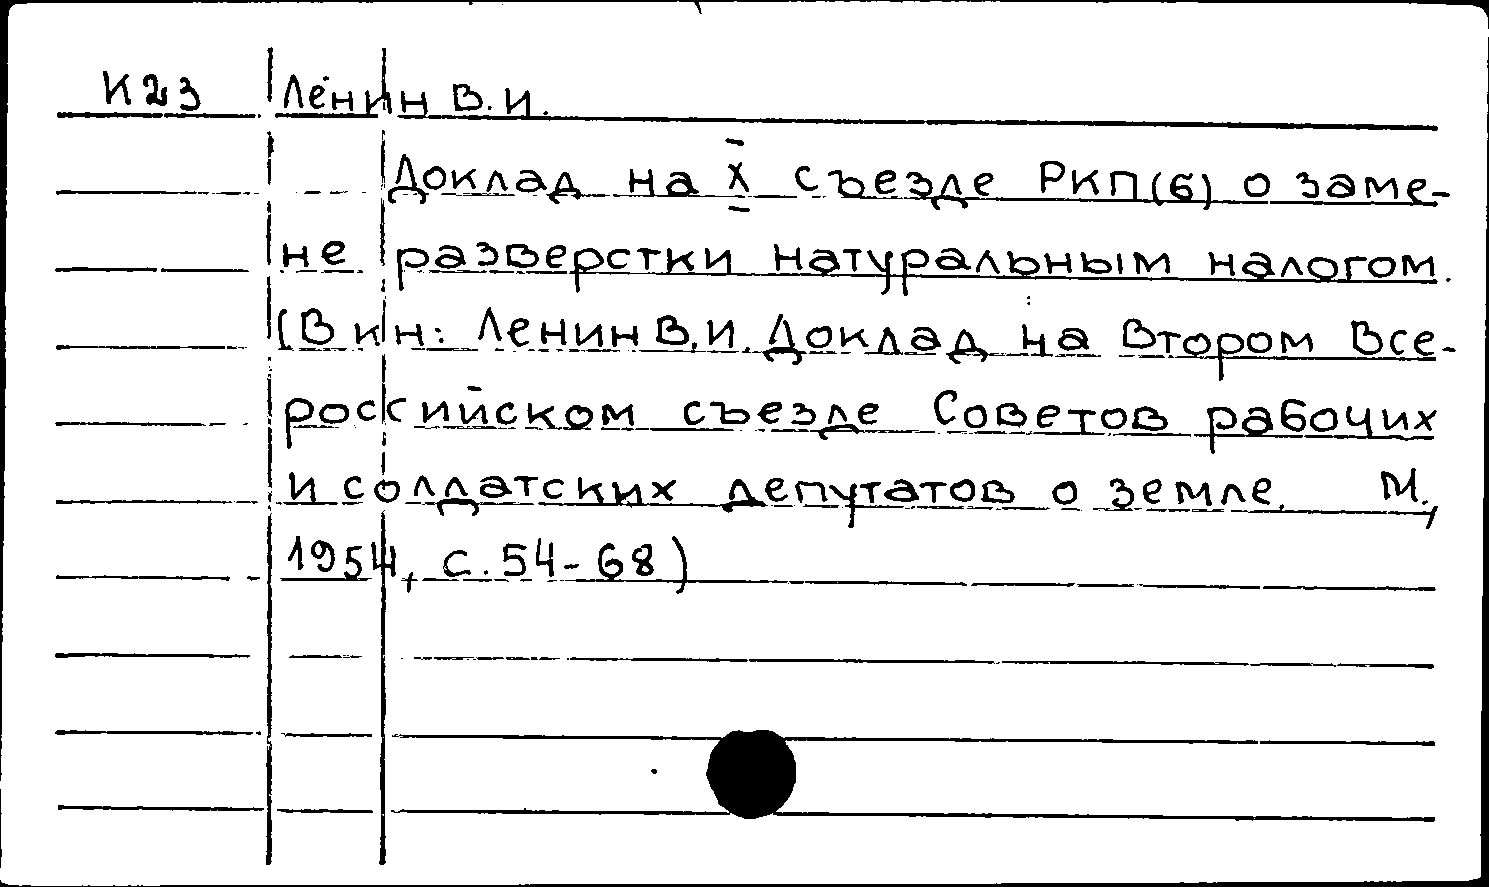 К23 Ленин В.И.
Доклад на X съезде РКП(б) о заме-
не разверстки натуральным налогом.
(В кн: Ленин В.И. Доклад на Втором Все-
российском съезде Советов рабочих
и солдатских депутатов о земле. М.,
1954, с. 54-68)